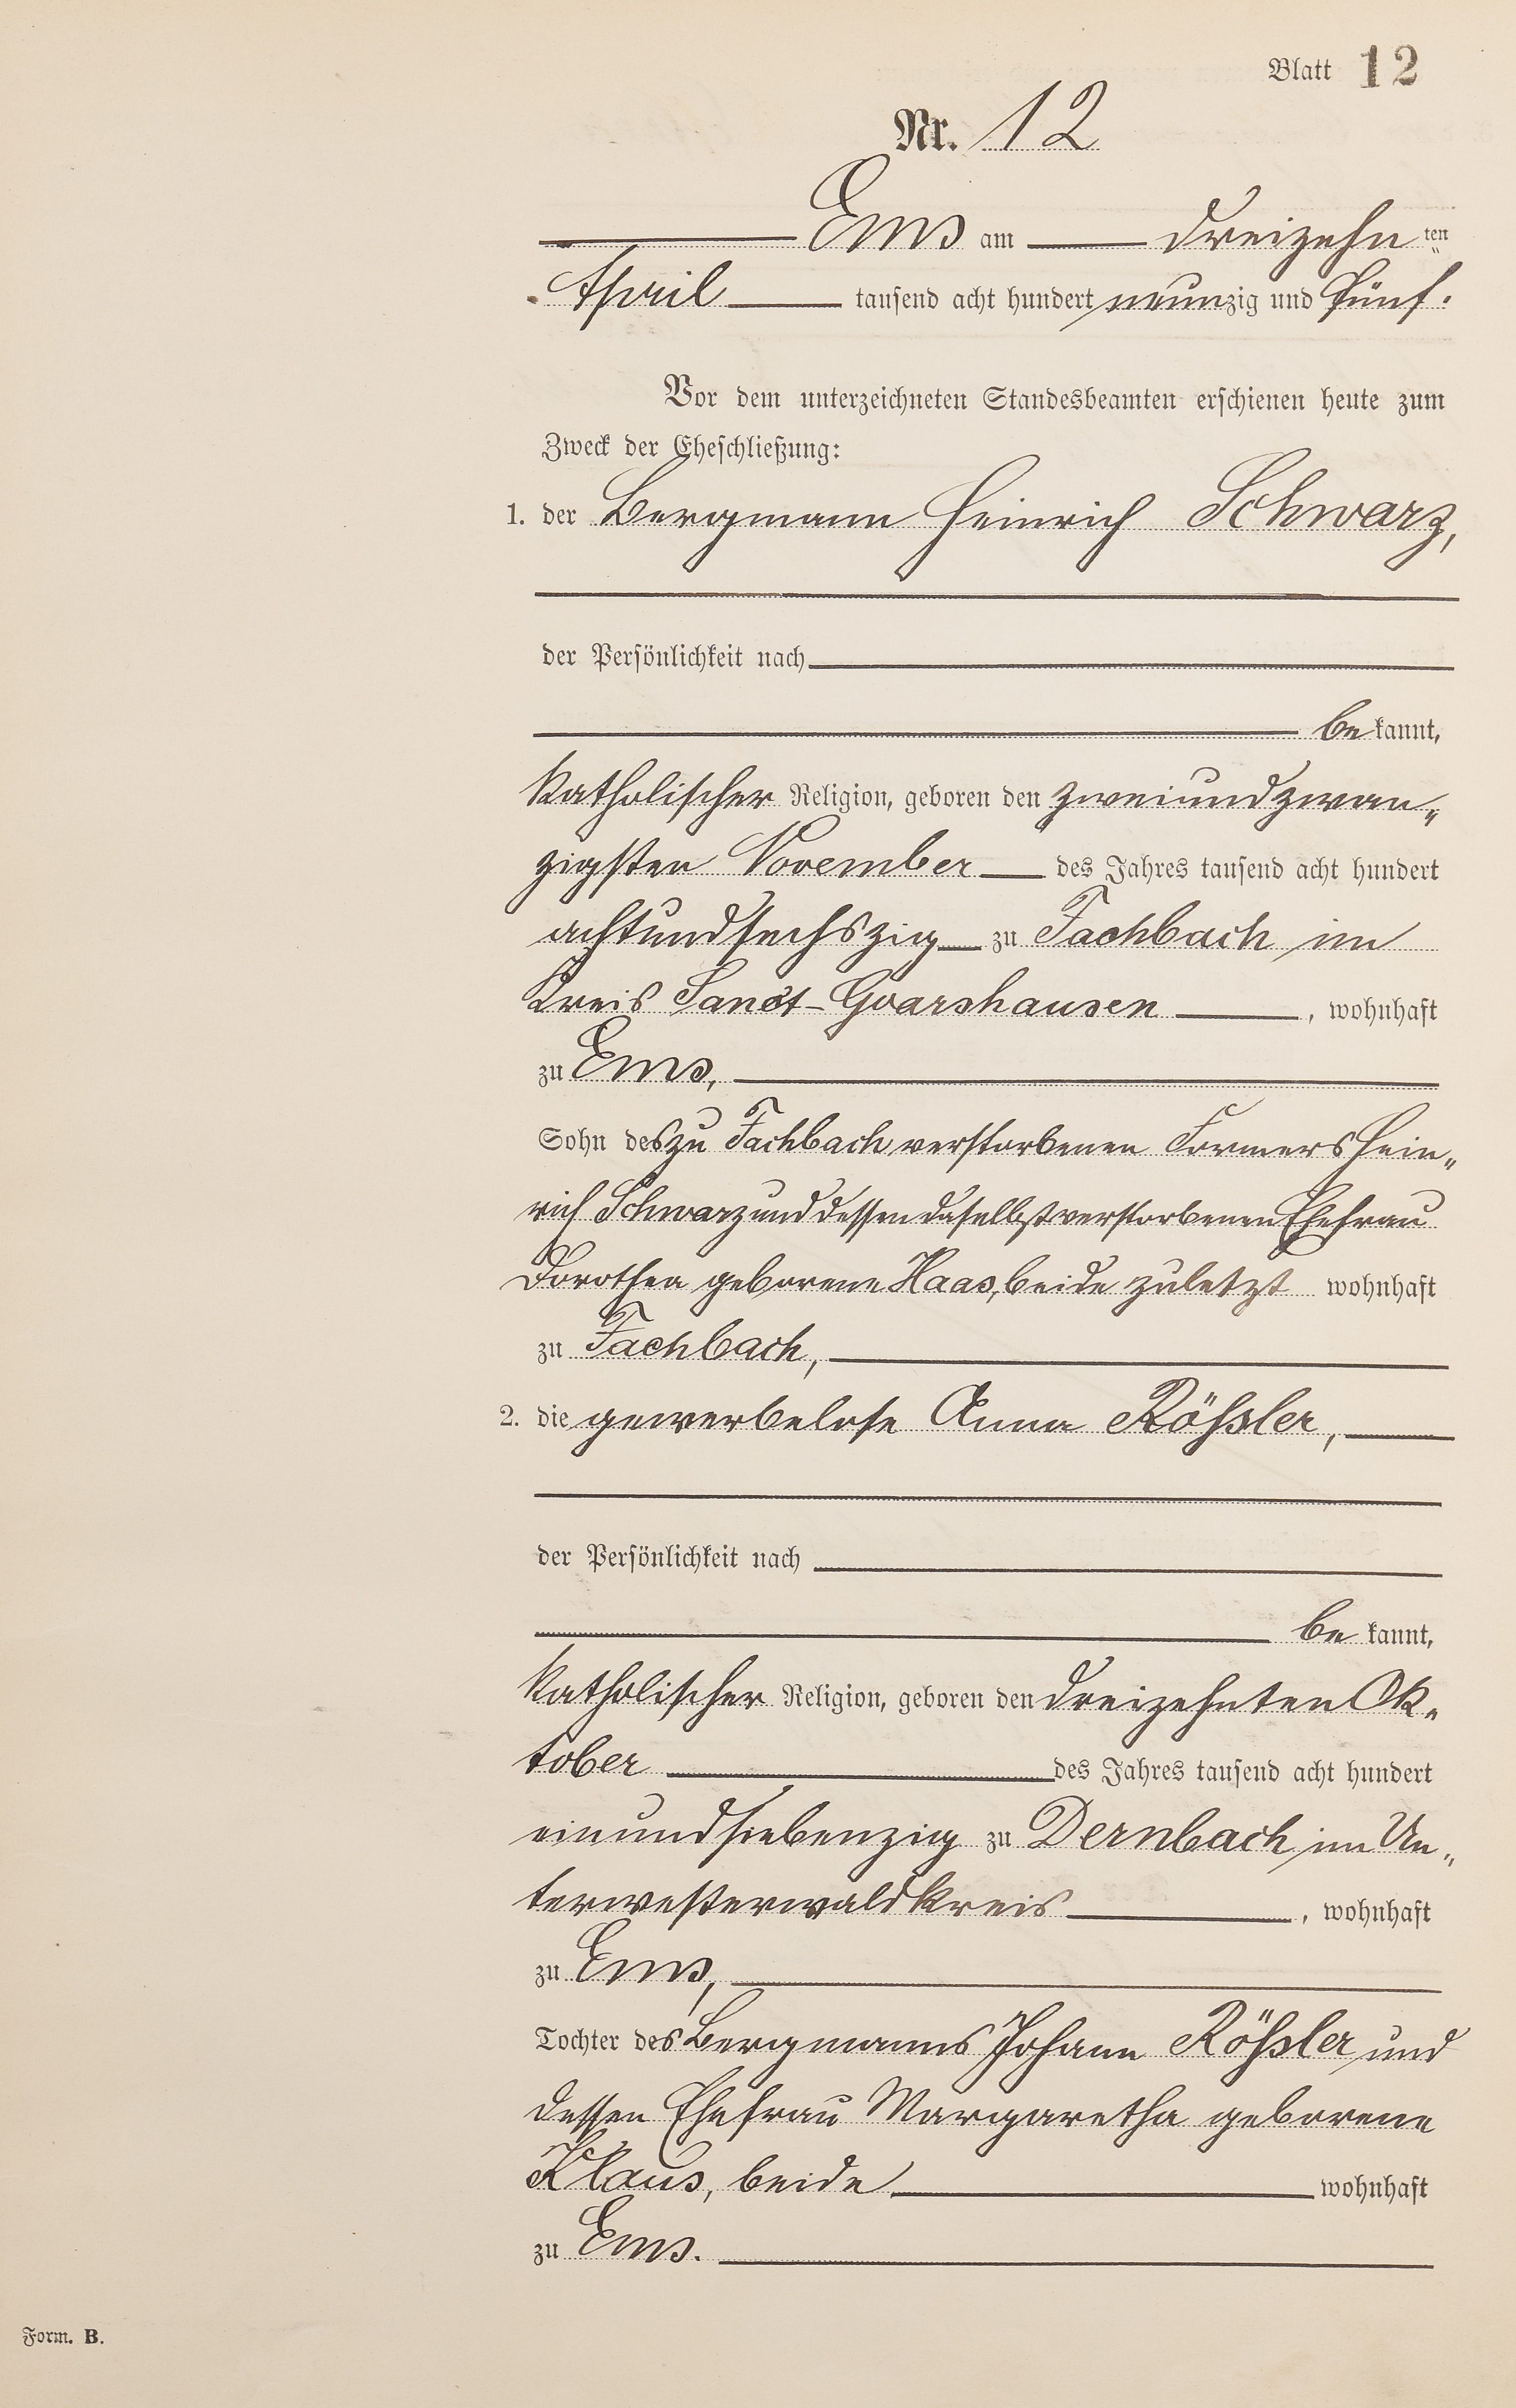 Blatt 12
Nr. 12
Ems am dreizehnten
April tausend acht hundert neunzig und fünf.
Vor dem unterzeichneten Standesbeamten erschienen heute zum
Zweck der Eheschließung:
1. der Bergmann Heinrich Schwarz,
der Persönlichkeit nach
bekannt,
katholischer Religion, geboren den zweiundzwan„
zigsten November des Jahres tausend acht hundert
achtundsechszig zu Fachbach im
Kreis Sanct-Goarshausen, wohnhaft
zu Ems,
Sohn des zu Fachbach verstorbenen Formers Hein„
rich Schwarz und dessen daselbst verstorbenen Ehefrau
Dorothea geborene Haas, beide zuletzt wohnhaft
zu Fachbach,
2. die gewerbelose Anna Rößler,
der Persönlichkeit nach
bekannt,
katholischer Religion, geboren den dreizehnten Ok„
tober des Jahres tausend acht hundert
einundsiebenzig zu Dernbach im Un„
terwesterwaldkreis, wohnhaft
zu Ems,
Tochter des Bergmanns Johann Rößler und
dessen Ehefrau Margaretha geborene
Klaus, beide wohnhaft
zu Ems.
Form. B.